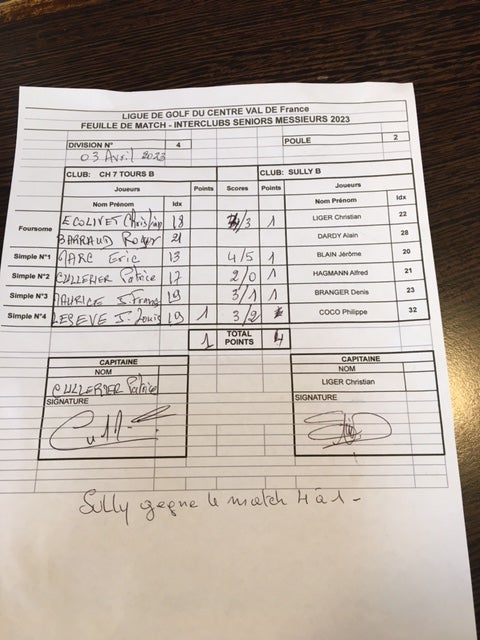 LIGUE DE GOLF DU CENTRE VAL DE France
FEUILLE DE MATCH - INTERCLUBS SENIORS MESSIEURS 2023
DIVISION N° 4 POULE 2
03 Avril 2023
CLUB: CH 7 TOURS B CLUB: SULLY B
Joueurs Points Scores Points Joueurs
Nom Prénom Idx Nom Prénom Idx
Foursome ECOLIVET Christian 18 /3 1 LIGER Christian 22
BARRAUD Roger 21 DARDY Alain 28
Simple N°1 MARC Eric 13 4/5 1 BLAIN Jérôme 20
Simple N°2 CULLERIER Patrice 17 2/0 1 HAGMANN Alfred 21
Simple N°3 MAURICE J. Franc 19 3/1 1 BRANGER Denis 23
Simple N°4 LESEVE J. Louis 19 1 3/2 COCO Philippe 32
1 TOTAL POINTS 4
CAPITAINE CAPITAINE
NOM NOM
CULLERIER Patrice LIGER Christian
SIGNATURE SIGNATURE
Sully gagne le match 4 à 1 -